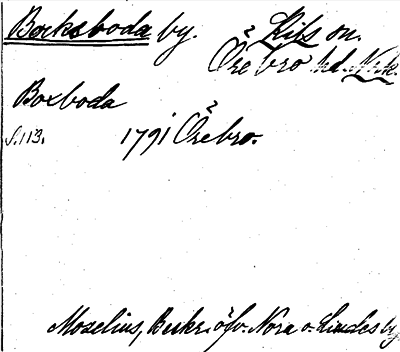 Bocksboda by. Kils sn.
Örebro hd. Nrke.
Boxboda
s. 113. 1791 Örebro.
Moselius, Beskr. öfv. Nora o. Lindes by